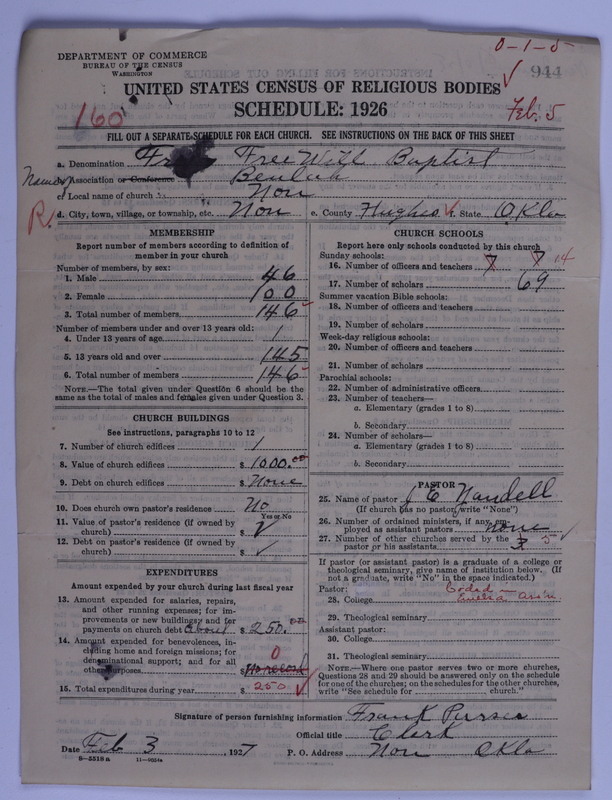 DEPARTMENT OF COMMERCE
BUREAU OF THE CENSUS
WASHINGTON
0-1-5
944
UNITED STATES CENSUS OF RELIGIOUS BODIES
SCHEDULE: 1926
160
Feb. 5
FILL OUT A SEPARATE SCHEDULE FOR EACH CHURCH. SEE INSTRUCTIONS ON THE BACK OF THIS SHEET
a. Denomination Free Will Baptist
Name of b. Association or Conference Beulah
c. Local name of church Non
R.
d. City, town, village, or township, etc. Non e. County Hughes f. State Okla
MEMBERSHIP
Report number of members according to definition of
member in your church
Number of members, by sex:
1. Male 46
2. Female 100
3. Total number of members 146
Number of members under and over 13 years old:
4. Under 13 years of age 1
5. 13 years old and over 145
6. Total number of members 146
NOTE.—The total given under Question 6 should be
same as the total of males and females given under Question 3.
CHURCH BUILDINGS
See instructions, paragraphs 10 to 12
7. Number of church edifices 1
8. Value of church edifices $ 1000.00
9. Debt on church edifices $ None
10. Does church own pastor's residence? No
Yes or No
11. Value of pastor's residence (if owned by
church) $ ✓
12. Debt on pastor's residence (if owned by
church) $ ✓
EXPENDITURES
Amount expended by your church during last fiscal year
13. Amount expended for salaries, repairs,
and other running expenses; for im-
provements or new buildings; and for
payments on church debt about $ 250.00
14. Amount expended for benevolences, in-
cluding home and foreign missions; for
denominational support; and for all
other purposes $ No record 0
15. Total expenditures during year $ 250
CHURCH SCHOOLS
Report here only schools conducted by this church
Sunday schools:
16. Number of officers and teachers 7 7 14
17. Number of scholars 69
Summer vacation Bible schools:
18. Number of officers and teachers
19. Number of scholars
Week-day religious schools:
20. Number of officers and teachers
21. Number of scholars
Parochial schools:
22. Number of administrative officers
23. Number of teachers—
a. Elementary (grades 1 to 8)
b. Secondary
24. Number of scholars—
a. Elementary (grades 1 to 8)
b. Secondary
PASTOR
25. Name of pastor J E Nandell
(If church has no pastor, write "None")
26. Number of ordained ministers, if any, em-
ployed as assistant pastors none
27. Number of other churches served by the
pastor or his assistants 3 5
If pastor (or assistant pastor) is a graduate of a college or
theological seminary, give name of institution below. (If
not a graduate, write "No" in the space indicated.)
Pastor:
28. College
29. Theological seminary
Assistant pastor:
30. College
31. Theological seminary
NOTE.—Where one pastor serves two or more churches,
Questions 28 and 29 should be answered only on the schedule
for one of the churches; on the schedules for the other churches,
write "See schedule for church."
Signature of person furnishing information Frank
Official title Clerk
Date Feb 3, 1927 P. O. Address Non Okla
8-5518 a